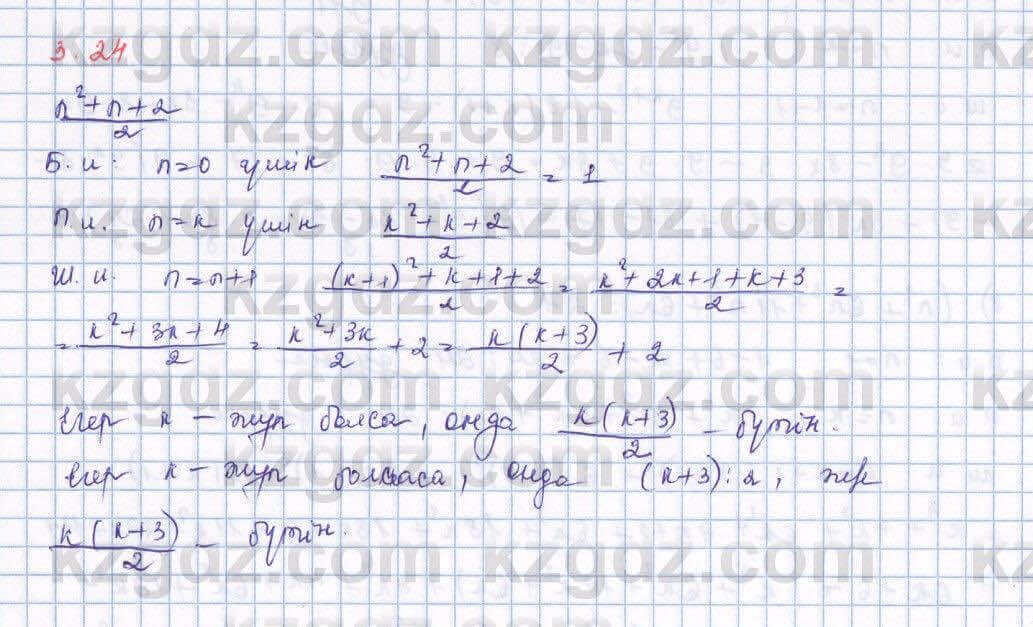 3.24
(n²+n+2)/2
Б.и. n=0 үшін (n²+n+2)/2 = 1
П.и. n=k үшін (k²+k+2)/2
Ш.и. n=n+1 ((k+1)²+k+1+2)/2 = (k²+2k+1+k+3)/2 =
= (k²+3k+4)/2 = (k²+3k)/2 + 2 = k(k+3)/2 + 2
Егер k – жұп болса, онда k(k+3)/2 – бүтін.
Егер k – жұп болмаса, онда (k+3):2, жер
k(k+3)/2 – бүтін.
kzgdz.com